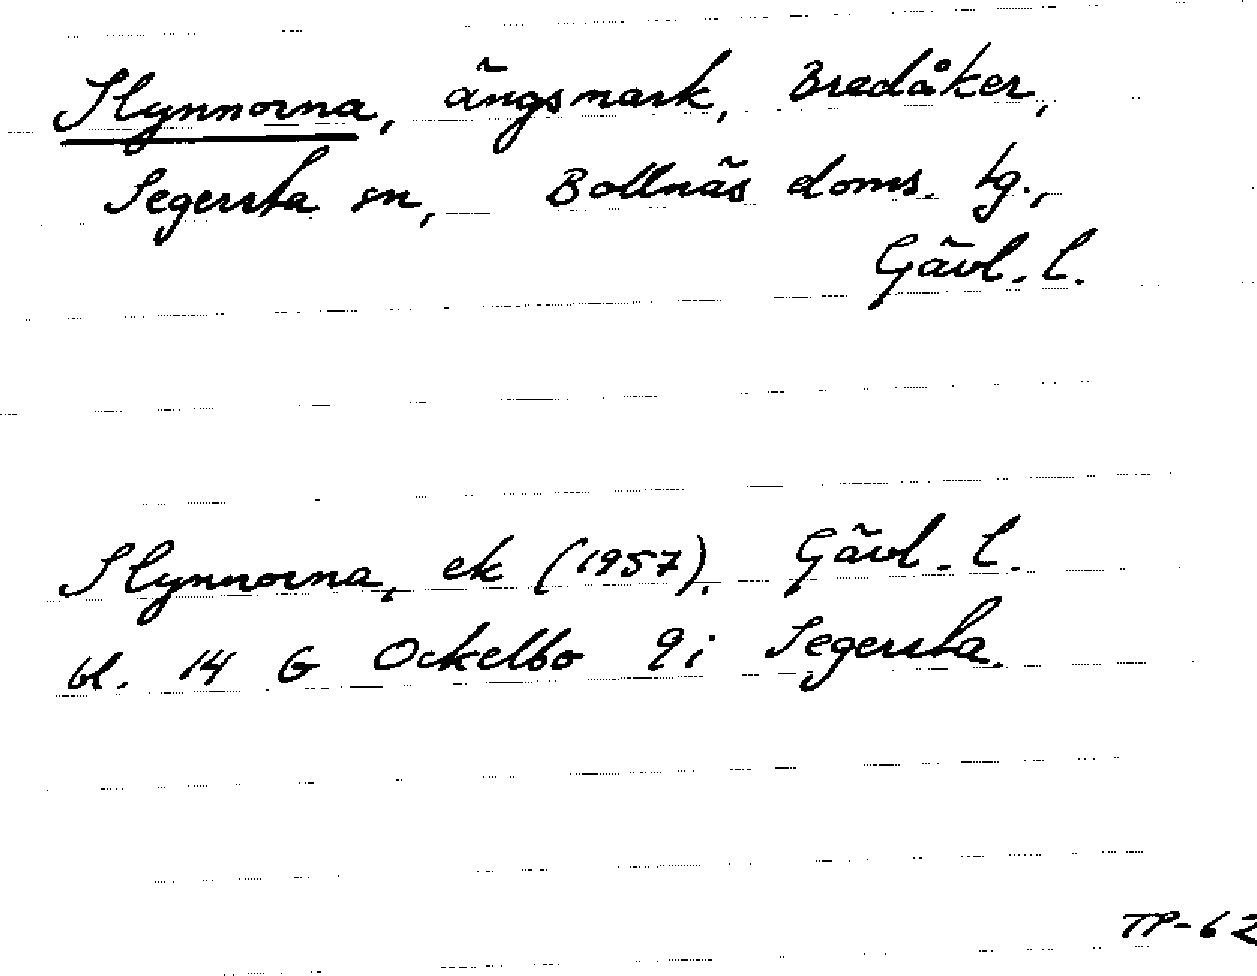 Slynnorna, ängsmark, Bredåker,
Segersta sn, Bollnäs doms. tg.,
Gävl. l.
Slynnorna, ek (1957). Gävl. l.
bl. 14 G Ockelbo 9i Segersta.
TP-62